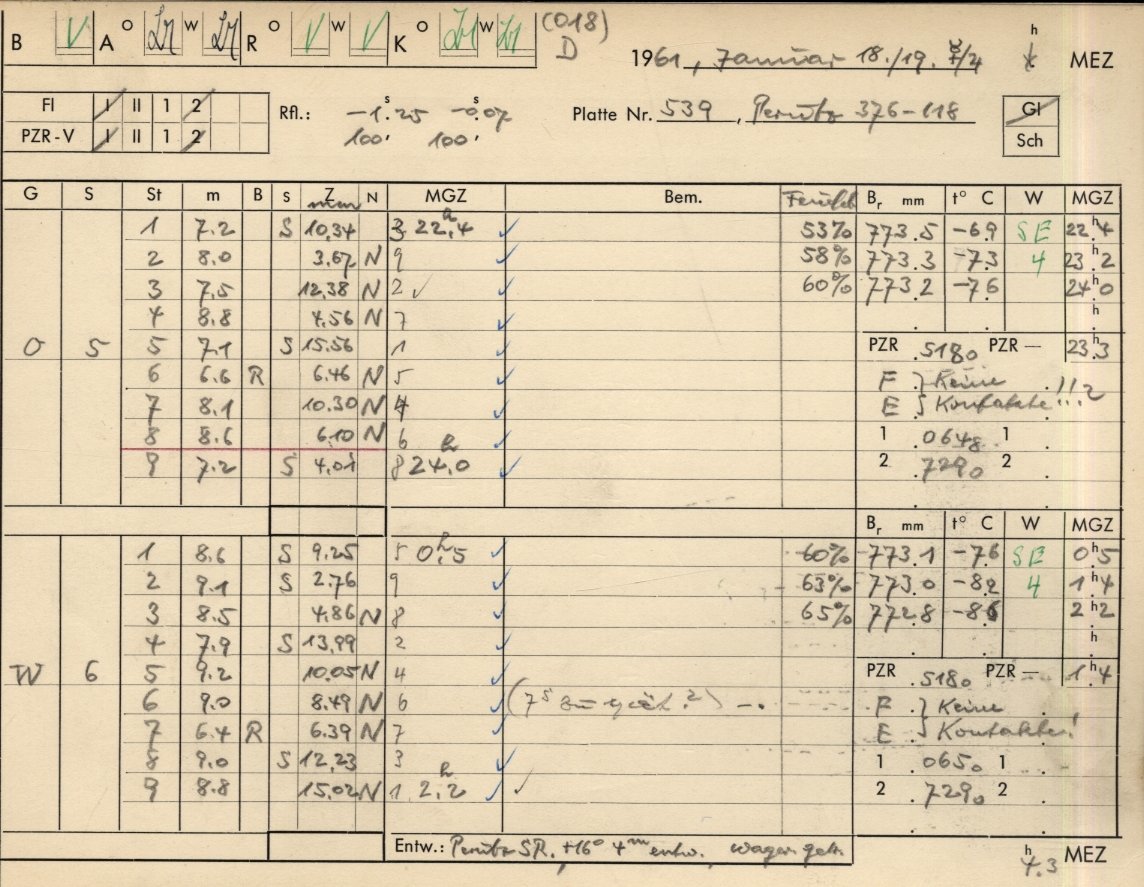 B V A O W R O V W V K O W (018)
D
1961, Januar 18./19. h MEZ
Fl I II 1 2
PZR-V I II 1 2
Rfl.: -1.ˢ25 -0.ˢ07
100' 100'
Platte Nr. 539, Perutz 376-118
Gl
Sch
G S St m B S Z mm N MGZ Bem. Feucht Br mm t° C W MGZ
1 7.2 S 10,34 3 22ʰ.4 ✓ 53% 773.5 -6.9 SE 22ʰ.4
2 8.0 3.67 N 9 ✓ 58% 773.3 -7.3 4 23ʰ.2
3 7.5 12,38 N 2 ✓ 60% 773.2 -7.6 24ʰ.0
4 8.8 4.56 N 7 ✓ . . h .
O S 5 7.1 S 15.56 1 ✓ PZR .5180 PZR — 23ʰ.3
6 6.6 R 6.46 N 5 ✓ F . } Keine . !!!
7 8.1 10.30 N 4 ✓ E . Kontakte
8 8.6 6.10 N 6 ✓ 1 .0648 1 .
9 7.2 S 4.01 8 24ʰ.0 ✓ 2 .7290 2 .
Br mm t° C W MGZ
1 8.6 S 9.25 5 0ʰ.5 ✓ 60% 773.1 -7.6 SE 0ʰ.5
2 9.1 S 2.76 9 ✓ 63% 773.0 -8.2 4 1ʰ.4
3 8.5 4.86 N 8 ✓ 65% 772.8 -8.6 2ʰ.2
4 7.9 S 13,99 2 ✓ . . h .
W 6 5 9.2 10.05 N 4 ✓ PZR .5180 PZR — 1ʰ.4
6 9.0 8.49 N 6 ✓ (7ˢ zu spät?) F . } Keine
7 6.4 R 6.39 N 7 ✓ E . Kontakte!
8 9.0 S 12,23 3 ✓ 1 .0650 1 .
9 8.8 15.02 N 1 2ʰ.2 ✓ ✓ 2 .7290 2 .
Entw.: Perutz SR. +16° 4ᵐ entw.
4ʰ.3 MEZ